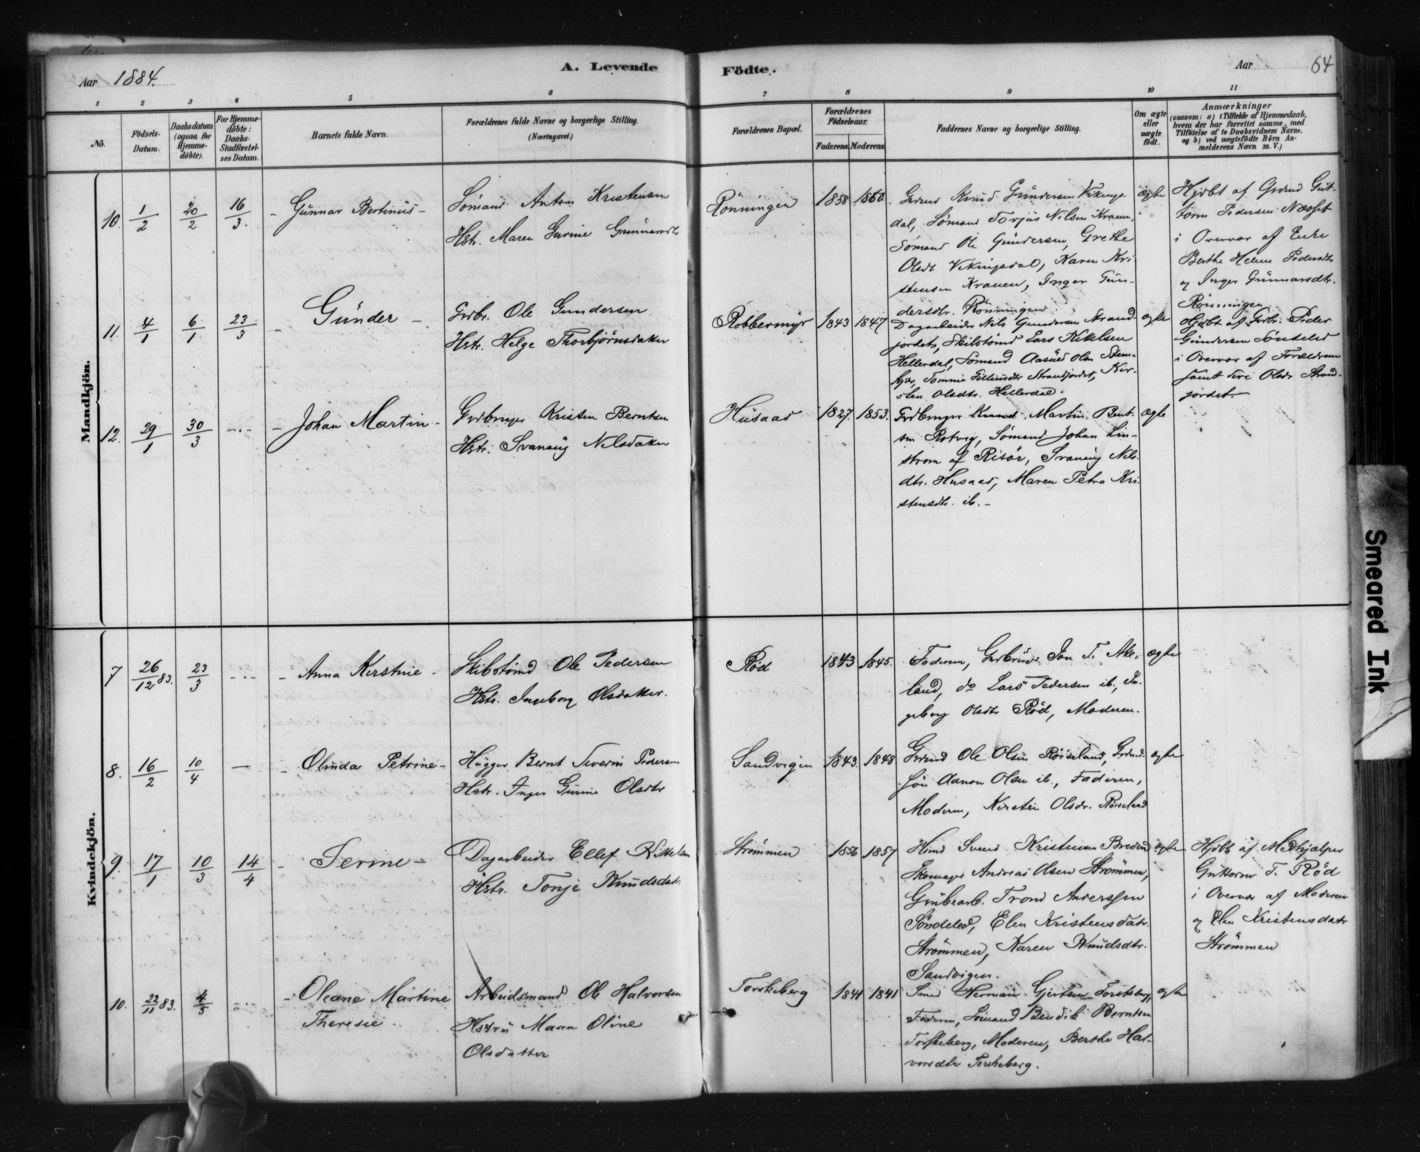 Aar 1884.
A. Levende Födte.
Aar 64
1 2 3 4 5 6 7 8 9 10 11
No.
Födsels-Datum.
Daabsdatum (ogsaa for Hjemme-døbte).
For Hjemme-døbte: Daabs-Stadfæstel-ses Datum.
Barnets fulde Navn.
Forældrenes fulde Navne og borgerlige Stilling. (Næringsvei.)
Forældrenes Bopæl.
Forældrenes Födselsaar.
Faderens Moderens
Faddernes Navne og borgerlige Stilling.
Om ægte eller uægte födt.
Anmærkninger
(saasom: a) i Tilfælde af Hjemmedaab, hvem der har forrettet samme, med Tilföielse af to Daabsvidners Navne. og b) ved uægtefödte Börn An-melderens Navn m. V.)
Mandkjön.
10. 1/2 20/2 16/3. Gunnar Bertinius
Sömand Anton Kristensen
Hstr. Maren Gurine Gunnarsdtr
Rönningen 1858 1860.
Gaardmd Knud Gundersen Vikings
dal, Sömand Torjus Nilsen Kranen,
Sömand Ole Gundersen, Grethe
Olsdt Vikingsdal, Karen Kri
stensen Kranen, Inger Gun-
dersdtr. Rönningen
ægte
Hjdbt af Grdmd Gut
torm Pedersen Næsset
i Overvær af Enke
Berthe Helene Pedersdtr
og Inger Gunnarsdtr.
Rönningen
11. 4/1 6/1 23/3 Günder
Grbr. Ole Gundersen
Hstr. Helge Thorbjørnsdatter
Robbermyr 1843 1847
Dagarbeider Nils Gundersen Strand
jordet, Skibstömd Lars Kittelsen
Hellerdal, Sömand Aasuld Olsen
Strandjordet, Kir-
sten Olsdtr. Hellerdal.
ægte
Hjdbt af Grdbr. Peder
Gundersen Söndeled
i Overvær af Forældrene
samt Siri Olsdtr Strand-
jordet
12. 29/1 30/3 Johan Martin
Grdbruger Kristen Berntsen
Hstr. Svanaug Nilsdatter
Husaas 1827. 1853.
Grdbruger Knud Martin Bent
sen Rotvig, Sömand Johan Lin-
strom af Risör, Svanaug Nils
dtr. Husaas, Maren Petra Kri
stensdtr. ib.
ægte
Kvindekjön.
7 26/12 83. 23/3 Anna Kirstine
Skibstömd Ole Pedersen
Hstr. Ingeborg Olsdatter.
Röd 1843 1845.
Faderen, Grdbruger Jon T. Ake-
land, do Lars Pedersen ib., In-
geborg Olsdtr Röd, Moderen.
ægte
8. 16/2 10/4 Olinda Petrine
Hugger Bernt Severin Pedersen
Hstr. Inger Gurine Olsdtr
Sandvigen 1843. 1848
Grdmd Ole Olsen Röiseland, Grdmd.
sön Aanon Olsen ib., Faderen,
Moderen, Kirstin Olsdtr. Röiseland
ægte
9. 17/1 10/3 14/4 Serine
Dagarbeider Ellef Kittelsen
Hstr. Tonje Knudsdatr.
Strömmen 1856 1857
Hmd Svend Kristensen Bredvd
Skomager Andreas Olsen Strömmen,
Grubearb. Trond Anderssen
Söndeled, Elen Kristensdatr.
Strömmen, Karen Knudsdtr.
Sandvigen.
ægte
Hjdbt af Medhjælper
Guttorm T. Röd
i Overvær af Moderen
og Elen Kristensdatr
Strömmen
10. 22/11 83. 4/5 Oleane Martine
Theresie
Arbeidsmand Ole Halvorsen
Hustru Maren Oline
Olsdatter
Torskeberg 1841 1841
Smed Herman Gjertsen Torskebg,
Faderen, Sömand Bendik Berntsen
Torskeberg, Moderen, Berthe Hal-
vorsdtr Torskeberg.
ægte
Smeared Ink